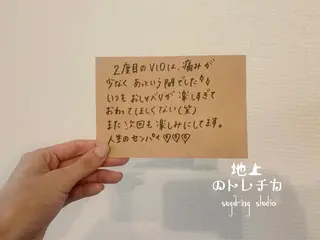 2度目のVIOは、痛みが
少なく あっという間でした!!
いつも おしゃべりが 楽しすぎて
おわってほしくない(笑)
また 次回も 楽しみにしてます。
人生のセンパイ♡♡♡
地上
のトレチカ
sugdring studio